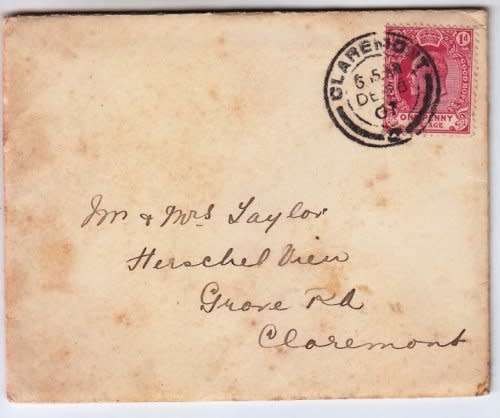 CLAREMONT
DE
07
1d
GOOD HOPE
ONE PENNY
Mr & Mrs Taylor
Herschel View
Grove Rd
Claremont